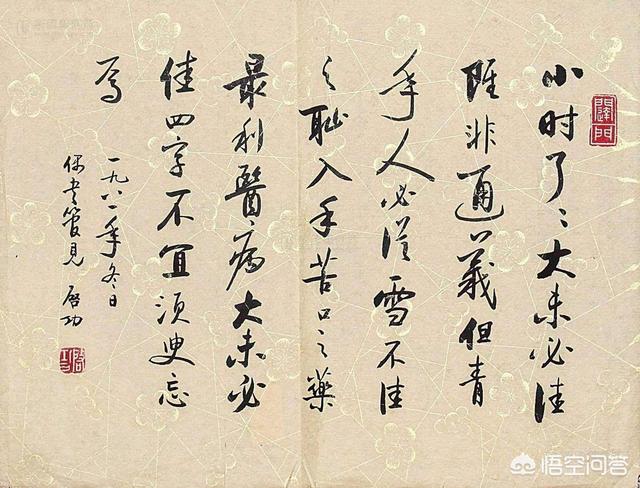 小时了々大未必佳
雖非通義但青
年人必須雪不佳
之耻入手苦口之藥
最利醫病大未必
佳四字不宜須臾忘
焉
一九八一年冬日
管見 启功
悟空问答